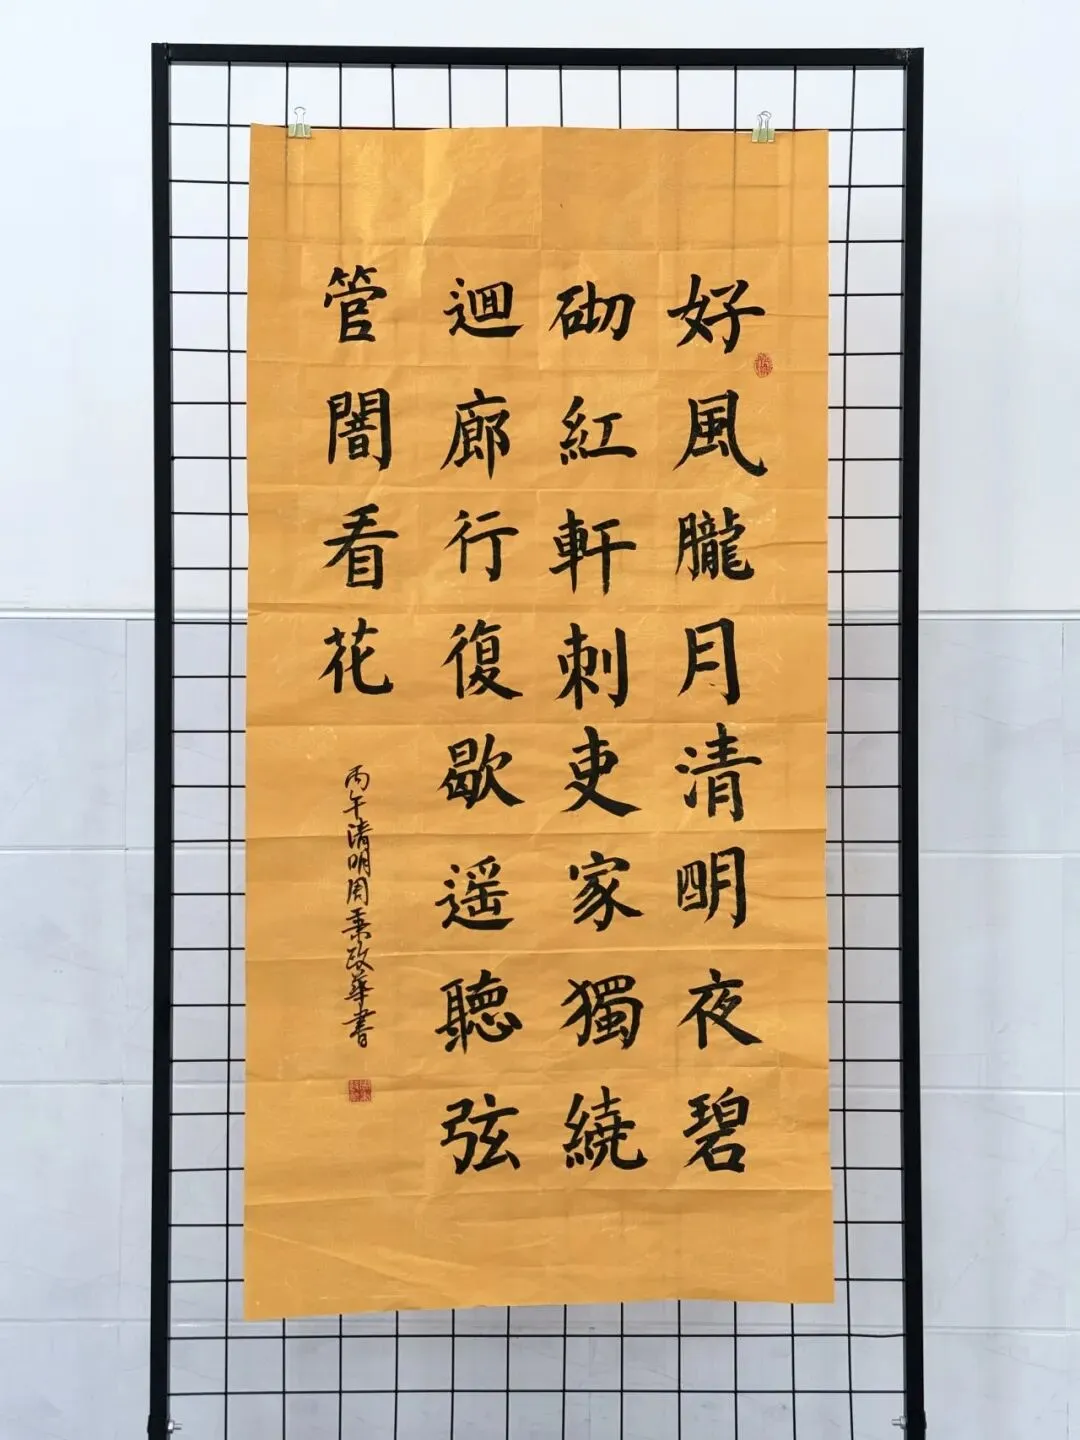 好風朧月清明夜碧
砌紅軒刺吏家獨繞
迴廊行復歇遥聽弦
管闇看花
丙午清明周秉政華書